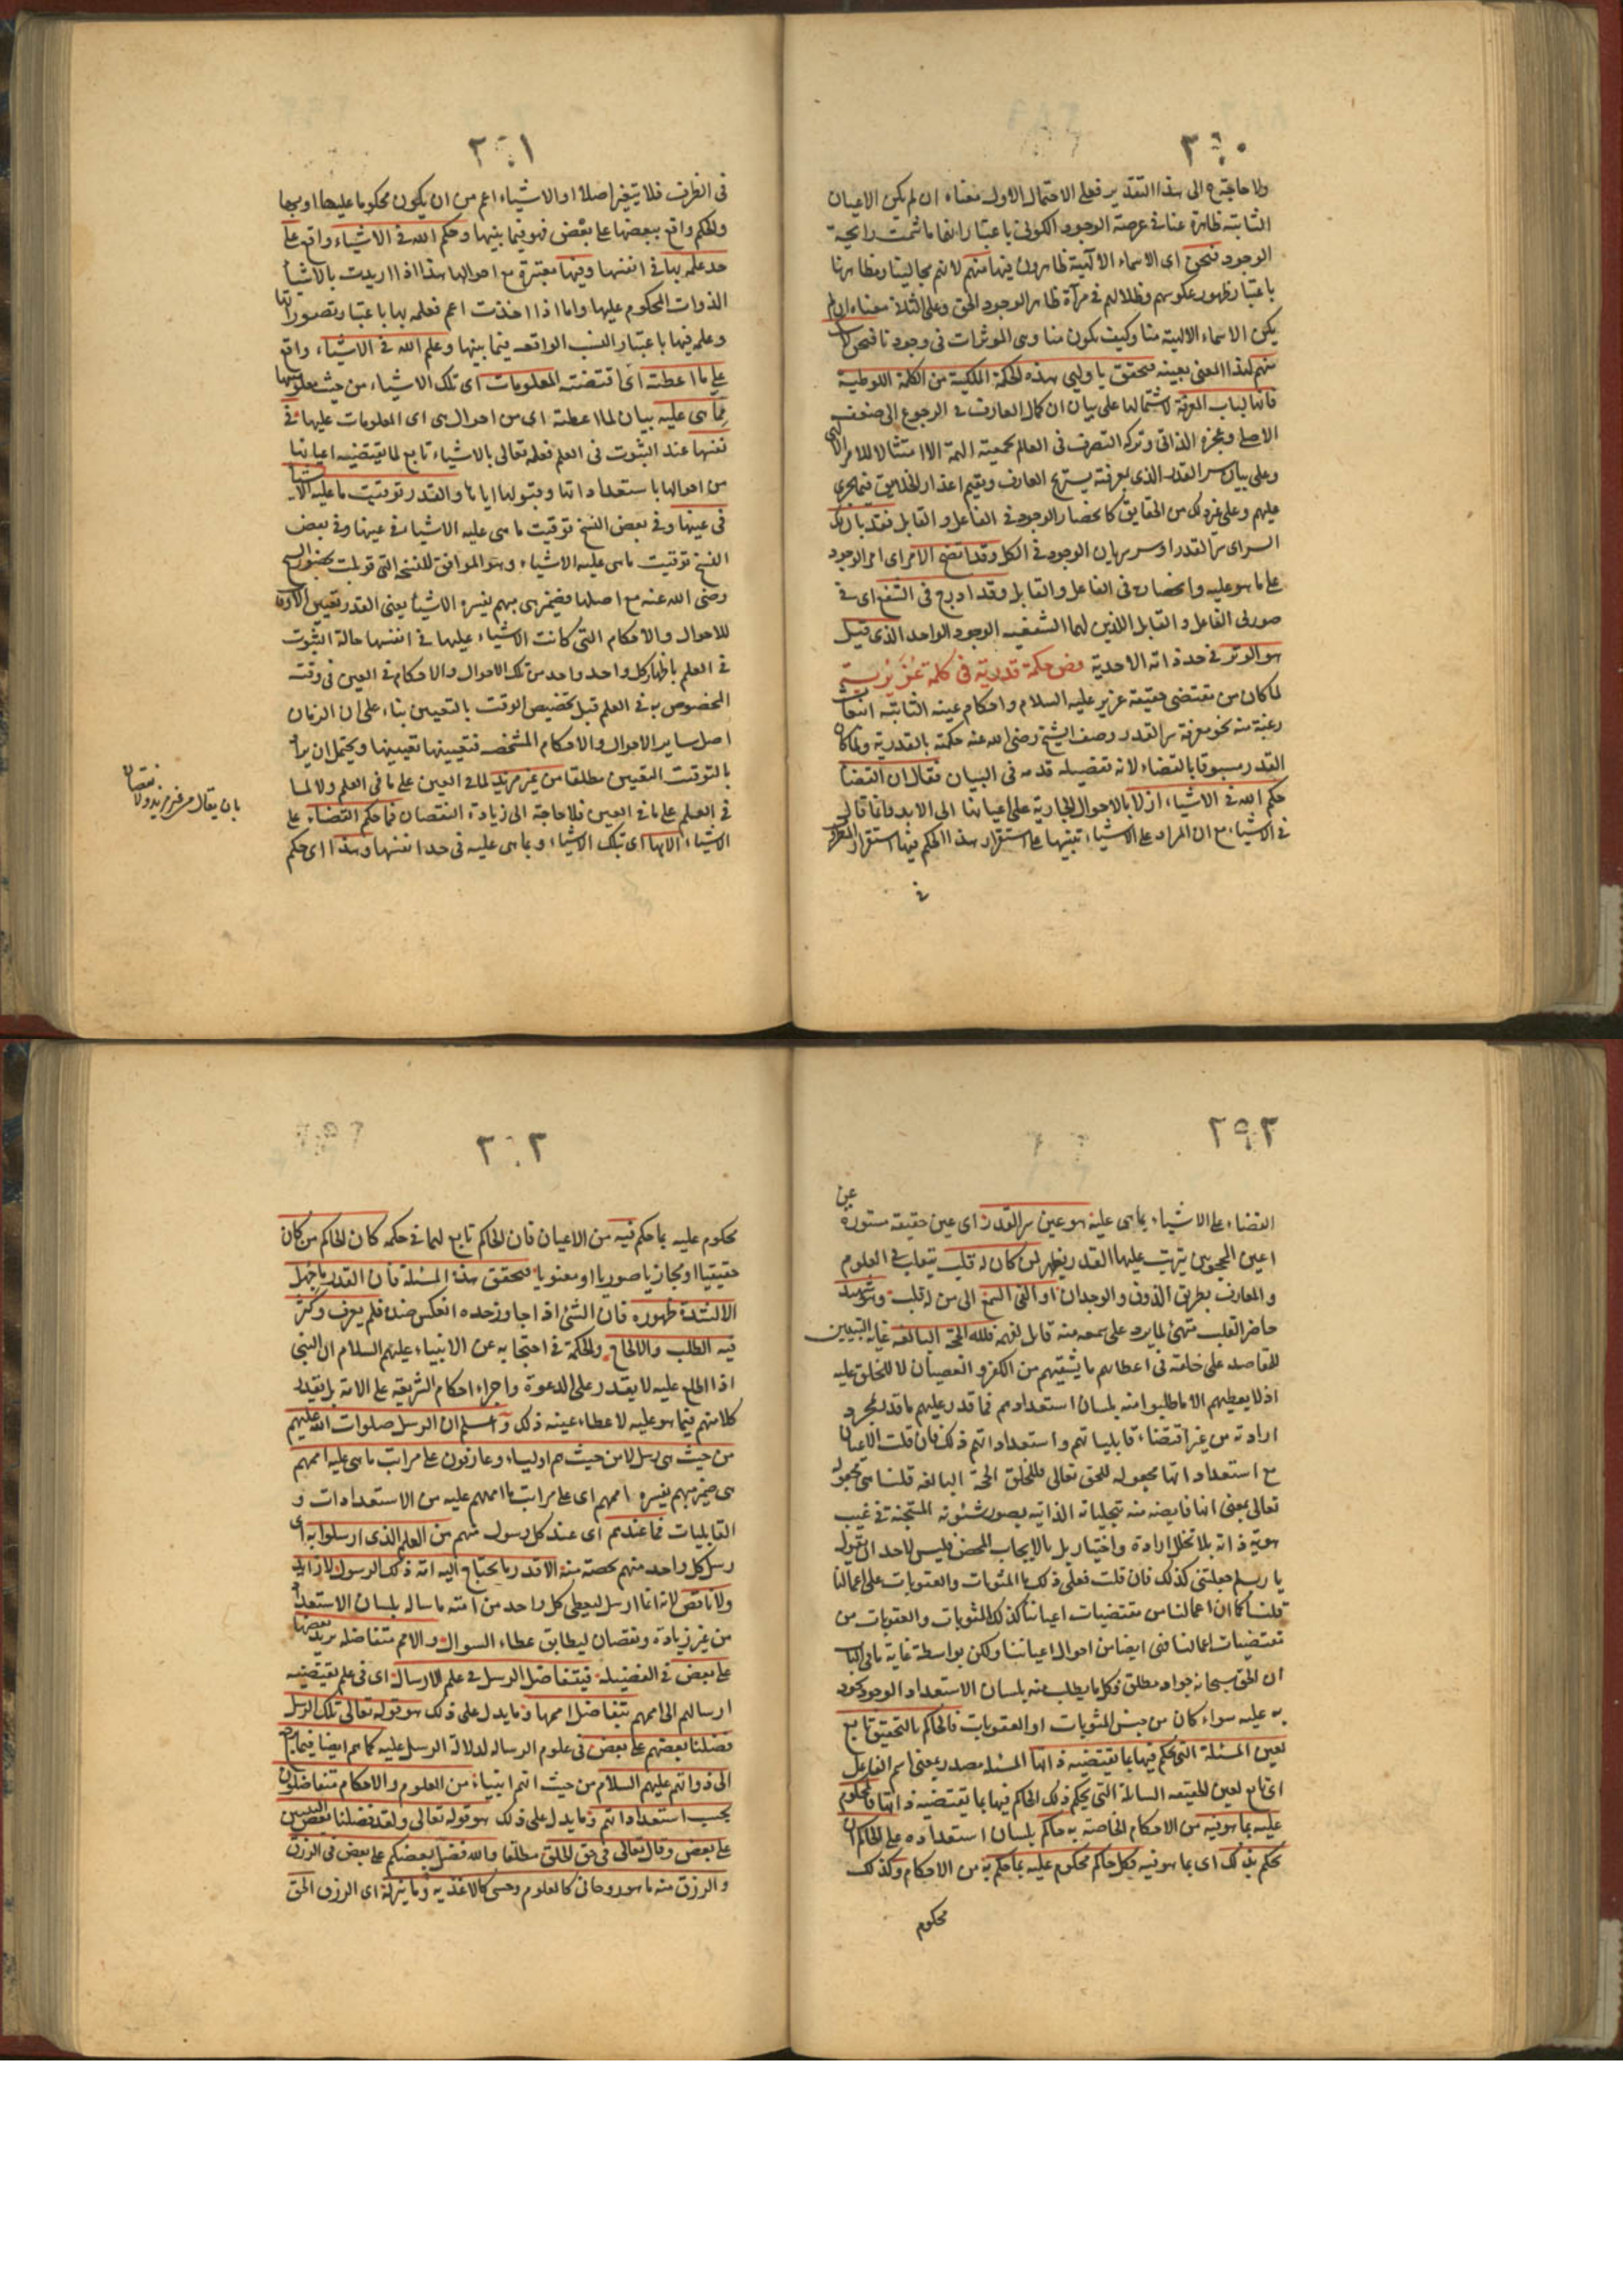 ٣٩٠
ولا حاجة ح الى هذا التقدير فعلى الاحتمال الاول معناه ان لم يكن الاعيان
الثابتة ظاهرة عنا في عرصة الوجود الكونى باعتبار انها ما شمت رايحة
الوجود فنحن اى الاسماء الالهية ظاهرون فيها منهم لانهم مجالينا ومظاهرنا
باعتبار ظهور عكوسهم وظلالهم في مرآة ظاهر الوجود الحق وعلى الثلاثى معناه ان لم
يكن الاسماء الالهية منا وكيف يكون منا وهى الموثرات في وجودنا فنحن
منهم لهذا المعنى بعينه فتحقق يا وليى هذه الحكمة الملكية من الكلمة اللوطية
فانها لباب المعرفة لاشتمالها على بيان ان كمال العارف في الرجوع الى ضعفه
الاصلى وعجزه الذاتى وتركه التصرف في العالم بجمعية الهمة الا امتثالا للامر الالهى
وعلى بيان سر القدر الذى بمعرفته يستريح العارف ويقيم اعذار الخلايق فيما يجرى
عليهم وعلى غير ذلك من الحقايق كانحصار الوجود في الفاعل والقابل فقد بان لك
السر اى سر القدر او سر سريان الوجود في الكل وقد اتضح الامر اى امر الوجود
على ما هو عليه وانحصاره في الفاعل والقابل وقد ادرج في الشفع اى في
صورتى الفاعل والقابل اللذين لهما الشفعية الوجود الواحد الذى قيل
هو الوتر في حد ذاته الاحدية فص حكمة قدرية في كلمة عزيرية
لما كان من مقتضى حقيقة عزير عليه السلام واحكام عينه الثابتة انبعاث
رغبة منه نحو معرفة سر القدر وصف الشيخ رضى الله عنه حكمته بالقدرية ولما كان
القدر مسبوقا بالقضاء لانه تفصيله قدمه في البيان فقال ان القضا
حكم الله في الاشياء ازلا بالاحوال الجارية على اعيانها الى الابد وانما قال
في الاشياء مع ان المراد على الاشياء تنبيها على استقرار هذا الحكم فيها استقرار المظروف
في
٣٩١
في الظرف فلا يتغير اصلا او الاشياء اعم من ان يكون محكوما عليها او بها
والحكم واقع ببعضها على بعض فهو فيما بينها وحكم الله في الاشياء واقع على
حد علمه بها في انفسها وفيها معتبرة مع احوالها هذا اذا اريدت بالاشيا
الذوات المحكوم عليها واما اذا اخذت اعم فعلمه بها باعتبار تصوراتها
وعلمه فيها باعتبار النسب الواقعه فيما بينها وعلم الله في الاشياء واقع
على ما اعطته اى اقتضته المعلومات اى تلك الاشياء من حيث معلوميتها
مما هى عليه بيان لما اعطته اى من احوال هى اى المعلومات عليها في
نفسها عند الثبوت في العلم فعلمه تعالى بالاشياء تابع لما يقتضيه اعيانها
من احوالها باستعداداتها وقبولها اياها والقدر توقيت ما عليه الاشيا
في عينها وفي بعض النسخ توقيت ما هى عليه الاشياء في عينها وفي بعض
النسخ توقيت ما هى عليه الاشياء وهو الموافق للنسخة التى قوبلت بحضور الشيخ
رضى الله عنه مع اصلها فضمير هى مبهم يفسره الاشيا يعنى القدر تعيين الاوقات
للاحوال والاحكام التى كانت الاشياء عليها في انفسها حالة الثبوت
في العلم باظهار كل واحد واحد من تلك الاحوال والاحكام في العين في وقت
المخصوص به في العلم قيل تخصيص الوقت بالتعيين بناء على ان الزمان
اصل ساير الاحوال والاحكام المشخصه فتعيينها تعيينها ويحتمل ان يراد
بالتوقيت التعيين مطلقا من غير مزيد لما في العين على ما في العلم ولا لما
في العلم على ما في العين فلا حاجة الى زيادة النقصان فما حكم القضاء على
الاشياء الا بها اى بتلك الاشياء وبما هى عليه في حد انفسها وهذا اى حكم
بان يقال من غير مزيد ولا نقصان
٣٩٢
القضاء على الاشياء بما هى عليه هو عين سر القدر اى عين حقيقة مستورة عن
اعين المحجوبين يترتب عليها القدر يظهر لمن كان له قلب يتقلب في العلوم
والمعارف بطريق الذوق والوجدان او القى السمع الى من له قلب وهو شهيد
حاضر القلب متهئ لما يرد على سمعه منه قابل لفهمه فلله الحجة البالغه غاية التبيين
للمقاصد على خلقه في اعطائهم ما يشقيهم من الكفر والعصيان لا للخلق عليه
اذ لا يعطيهم الا ما طلبوا منه بلسان استعدادهم فما قدر عليهم ما قدر بمجرد
ارادته من غير اقتضاء قابلياتهم واستعداداتهم ذلك فان قلت الاعيان
مع استعداداتها مجعوله للحق تعالى فللخلق الحجة البالغه قلنا هى مجعوله
تعالى بمعنى انها فايضه منه بتجلياته الذاتيه بصور شئونه المستجنة في غيب
هوية ذاته بلا تخلل ارادة واختيار بل بالايجاب المحض فليس لاحد ان يقول
يا رب لم جعلتنى كذلك فان قلت فعلى ذلك ما المثوبات والعقوبات على اعمالنا
قلنا كما ان اعمالنا من مقتضيات اعياننا كذلك المثوبات والعقوبات من
مقتضيات اعمالنا فهى ايضا من احوال اعياننا ولكن بواسطة غاية ما في الباب
ان الحق سبحانه جواد مطلق فكل ما يطلب منه بلسان الاستعداد الوجود يجود
به عليه سواء كان من جنس المثوبات او العقوبات فالحاكم بالتحقيق تابع
لعين المسئلة التى يحكم فيها بما يقتضيه ذاتها المسئله مصدر بمعنى اسم الفاعل
اى تابع لعين الحقيقه السائلة التى يحكم ذلك الحاكم فيها بما يقتضيه ذاتها فالمحكوم
عليه بما هو فيه من الاحكام الخاصة به حاكم بلسان استعداده على الحاكم ان
يحكم بذلك اى بما هو فيه فكل حاكم محكوم عليه بما حكم به من الاحكام وكذلك
محكوم
٣٩٣
محكوم عليه بما حكم فيه من الاعيان فان الحاكم تابع لهما في حكمه كان الحاكم من كان
حقيقيا او مجازيا صوريا او معنويا فتحقق هذه المسئلة فان القدر ما جهل
الا لشدة ظهوره فان الشئ اذا جاوز حده انعكس ضده فلم يعرف وكثر
فيه الطلب والالحاح والحكمة في احتجابه عن الانبياء عليهم السلام ان النبى
اذا اطلع عليه لا يقدر على الدعوة واجراء احكام الشريعة على الامة بل يقدر
كلا منهم فيما هو عليه لاعطاء عينه ذلك واعلم ان الرسل صلوات الله عليهم
من حيث هى رسل لا من حيث هم اولياء وعارفون على مراتب ما هى عليه اممهم
هى ضمير مبهم يفسره اممهم اى على مراتب ما اممهم عليه من الاستعدادات و
القابليات فما عندهم اى عند كل رسول منهم من العلم الذى ارسلوا به اى
رسل كل واحد منهم بحصة منه الا قدر ما يحتاج اليه امة ذلك الرسول لا زايد
ولا ناقص لانه انما ارسل ليعطى كل واحد من امته ما ساله بلسان الاستعداد
من غير زيادة ونقصان ليطابق عطاء السوال والامم متفاضله يزيد بعضها
على بعض في الفضيله فيتفاضل الرسل في علم الارسال اى في علم يقتضيه
ارسالهم الى اممهم بتفاضل اممها ومما يدل على ذلك هو قوله تعالى تلك الرسل
فضلنا بعضهم على بعض في علوم الرساله لدلالة الرسل عليه كما هم ايضا فيما يرجع
الى ذواتهم عليهم السلام من حيث انهم انبياء من العلوم والاحكام متفاضلون
بحسب استعداداتهم ومما يدل على ذلك هو قوله تعالى ولقد فضلنا بعض النبيين
على بعض وقال تعالى في حق الخلق مطلقا والله فضل بعضكم على بعض في الرزق
والرزق منه ما هو روحانى كالعلوم وحسى كالاغذيه وما ينزله اى الرزق الحق